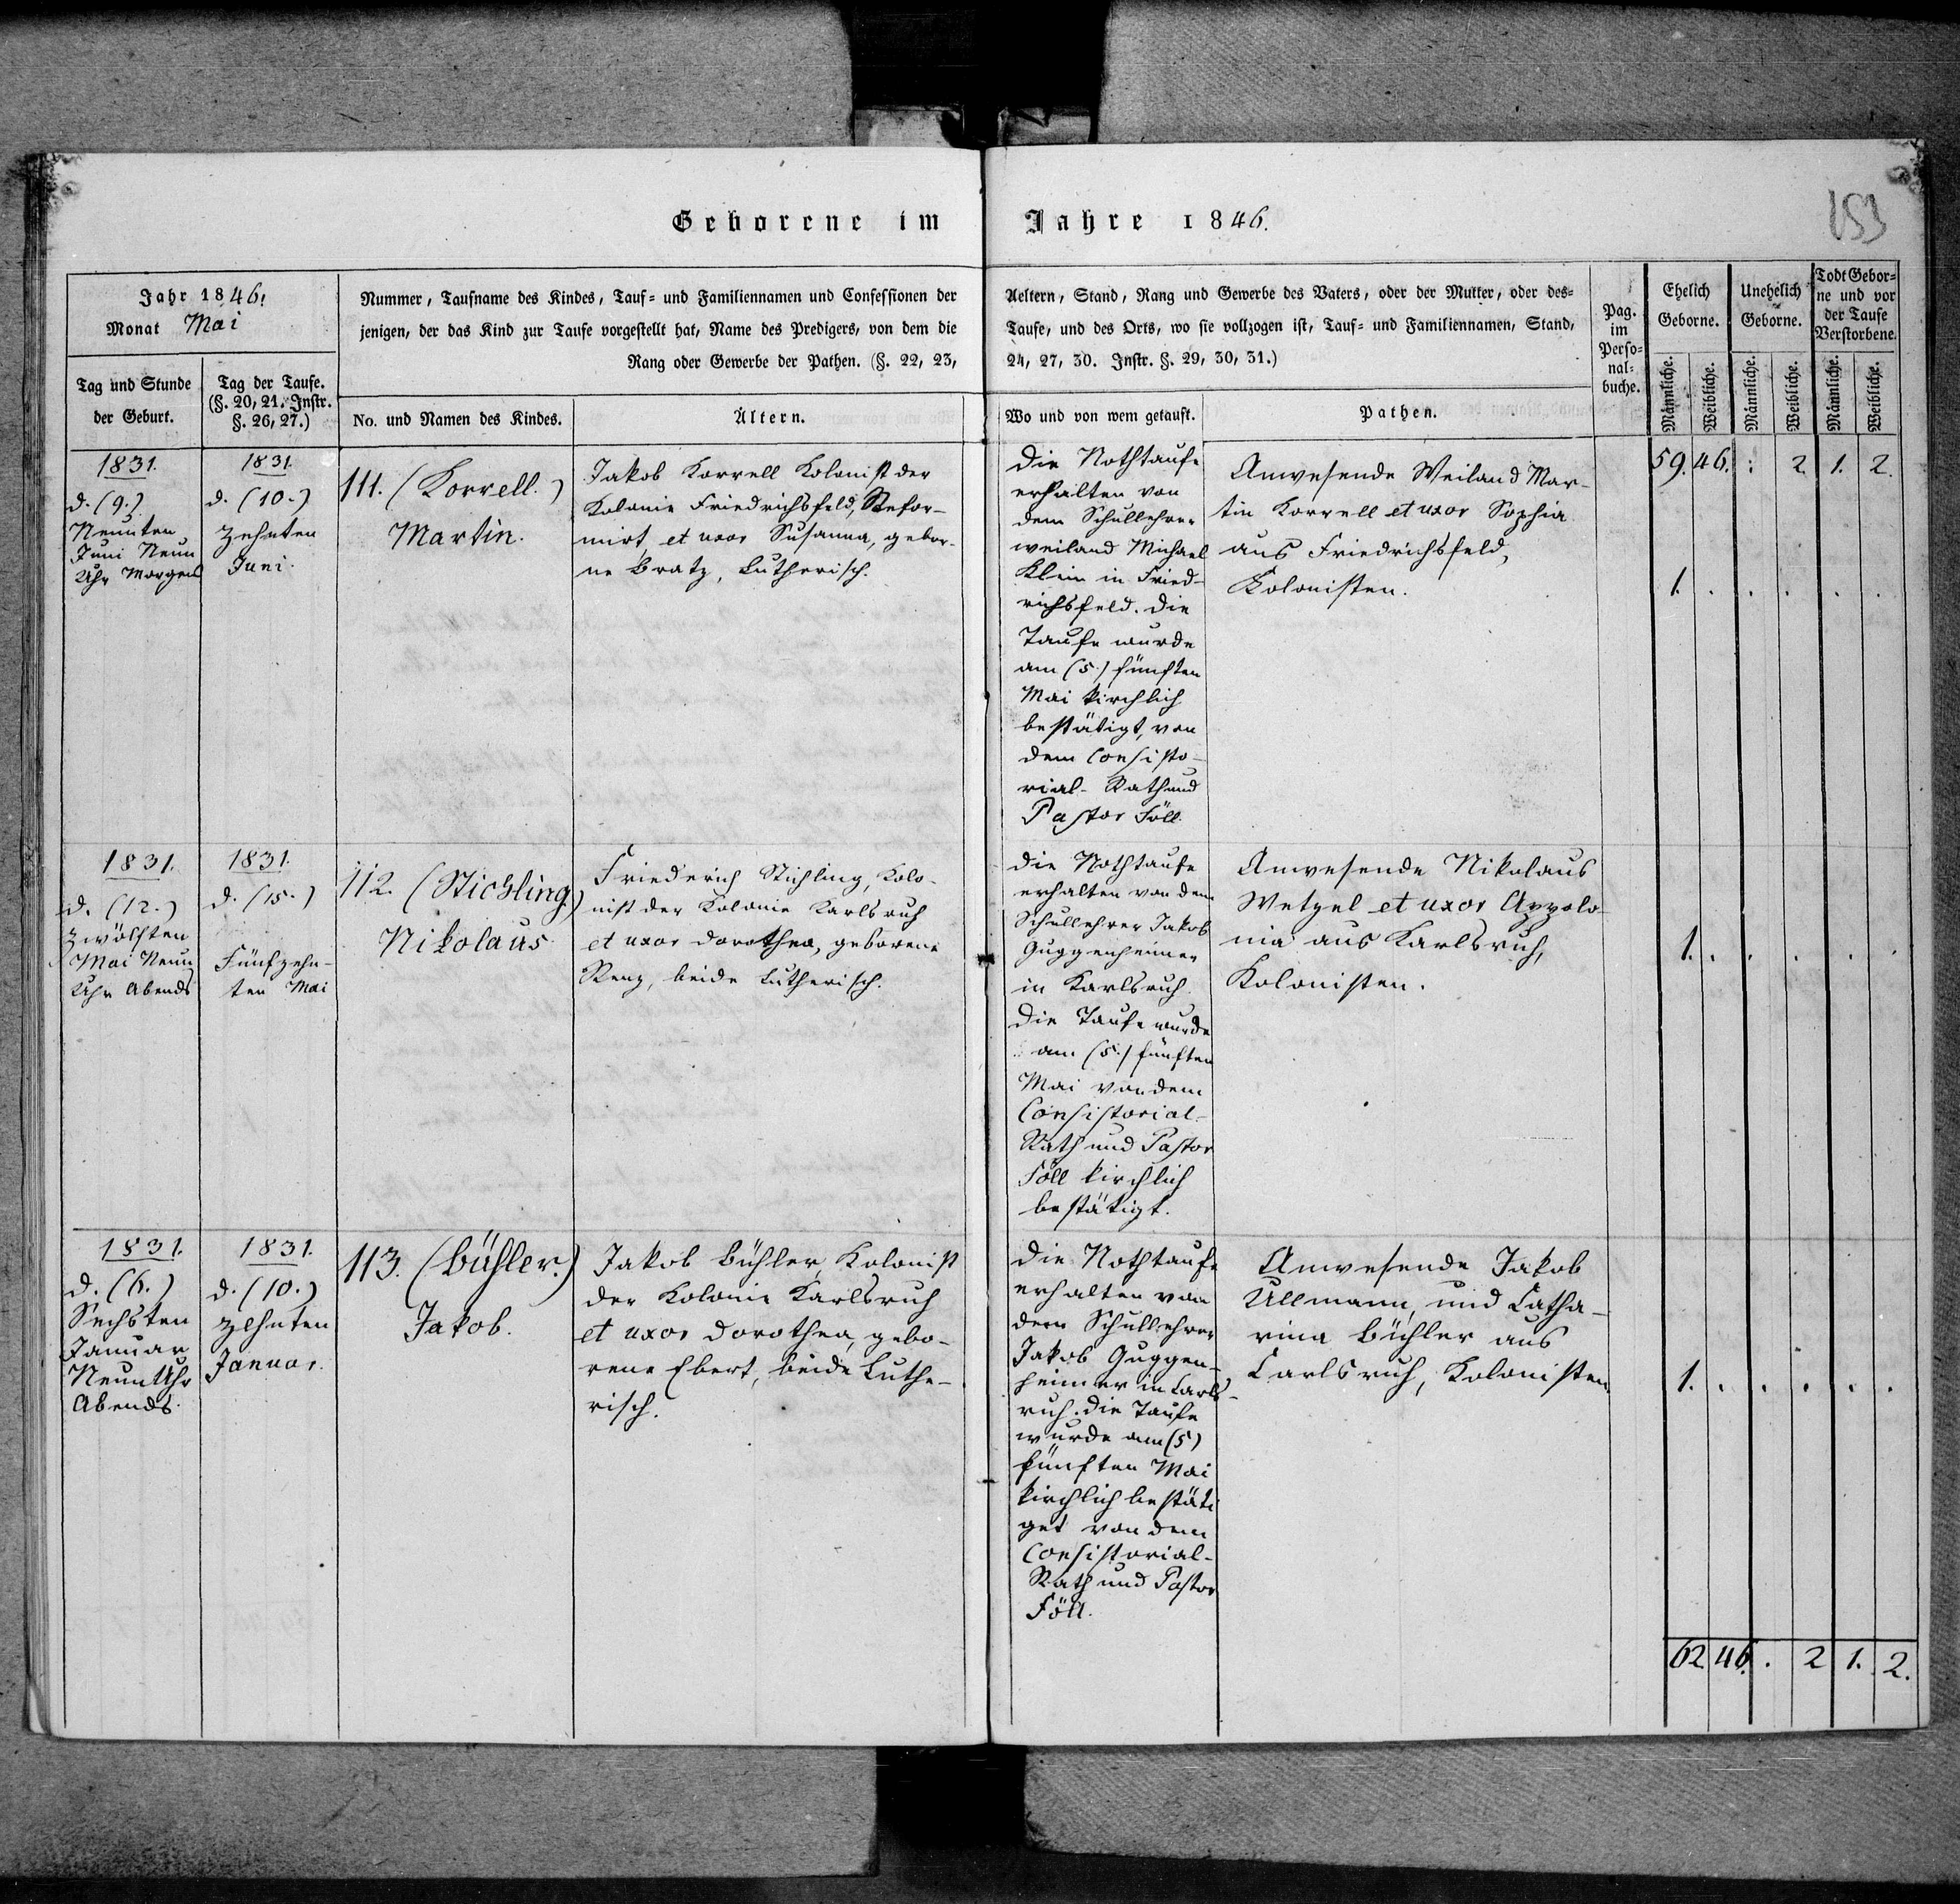 Geborene im Jahre 1846.
153
Jahr 1846.
Monat Mai
Nummer, Taufname des Kindes, Tauf= und Familiennamen und Confessionen der Aeltern, Stand, Rang und Gewerbe des Vaters, oder der Mutter, oder des=
jenigen, der das Kind zur Taufe vorgestellt hat, Name des Predigers, von dem die Taufe, und des Orts, wo sie vollzogen ist, Tauf= und Familiennamen, Stand,
Rang oder Gewerbe der Pathen. (§. 22, 23, 24, 27, 30. Instr. §. 29, 30, 31.)
Pag.
im
Perso=
nal=
buche.
Ehelich
Geborne.
Unehelich
Geborne.
Todt Gebor=
ne und vor
der Taufe
Verstorbene.
Männliche.
Weibliche.
Männliche.
Weibliche.
Männliche.
Weibliche.
Tag und Stunde
der Geburt.
Tag der Taufe.
(§. 20, 21. Instr.
§. 26, 27.)
No. und Namen des Kindes.
Ältern.
Wo und von wem getauft.
Pathen.
59. 46. : 2 1. 2.
1831.
d. (9.)
Neunten
Juni Neun
Uhr Morgens
1831.
d. (10.)
zehnten
Juni.
111. (Korrell.)
Martin.
Jakob Korrell Kolonist der
Kolonie Friedrichsfeld, Refor-
mirt, et uxor Susanna, gebor-
ne Bratz, Lutherisch.
Die Nothtaufe
erhalten von
dem Schullehrer
weiland Michael
Klein in Fried-
richsfeld. Die
Taufe wurde
am (5.) fünften
Mai kirchlich
bestätigt, von
dem Consisto-
rial-Rath und
Pastor Föll.
Anwesende Weiland Mar-
tin Korrell et uxor Sophia
aus Friedrichsfeld,
Kolonisten.
1. . . . . .
1831.
d. (12.)
zwölften
Mai Neun
Uhr Abends
1831.
d. (15.)
Fünfzehn-
ten Mai
112. (Stichling)
Nikolaus
Friederich Stichling, Kolo-
nist der Kolonie Karlsruh
et uxor Dorothea, geborene
Renz, beide Lutherisch.
Die Nothtaufe
erhalten von dem
Schullehrer Jakob
Guggenheimer
in Karlsruh.
Die Taufe wurde
am (5.) fünften
Mai von dem
Consistorial-
Rath und Pastor
Föll kirchlich
bestätigt.
Anwesende Nikolaus
Wetzel et uxor Appolo-
nia aus Karlsruh,
Kolonisten.
1. . . . . .
1831.
d. (6.)
Sechsten
Januar
Neun Uhr
Abends.
1831.
d. (10.)
zehnten
Januar.
113. (Bühler.)
Jakob.
Jakob Bühler, Kolonist
der Kolonie Karlsruh
et uxor Dorothea, gebo-
rene Ebert, beide Luthe-
risch.
Die Nothtaufe
erhalten von
dem Schullehrer
Jakob Guggen-
heimer in Carls-
ruh. Die Taufe
wurde am (5)
fünften Mai
kirchlich bestäti
get von dem
Consistorial-
Rath und Pastor
Föll.
Anwesende Jakob
Ullmann, und Catha-
rina Bühler aus
Carlsruh, Kolonisten
1. . . . . .
62 46. . 2 1. 2.